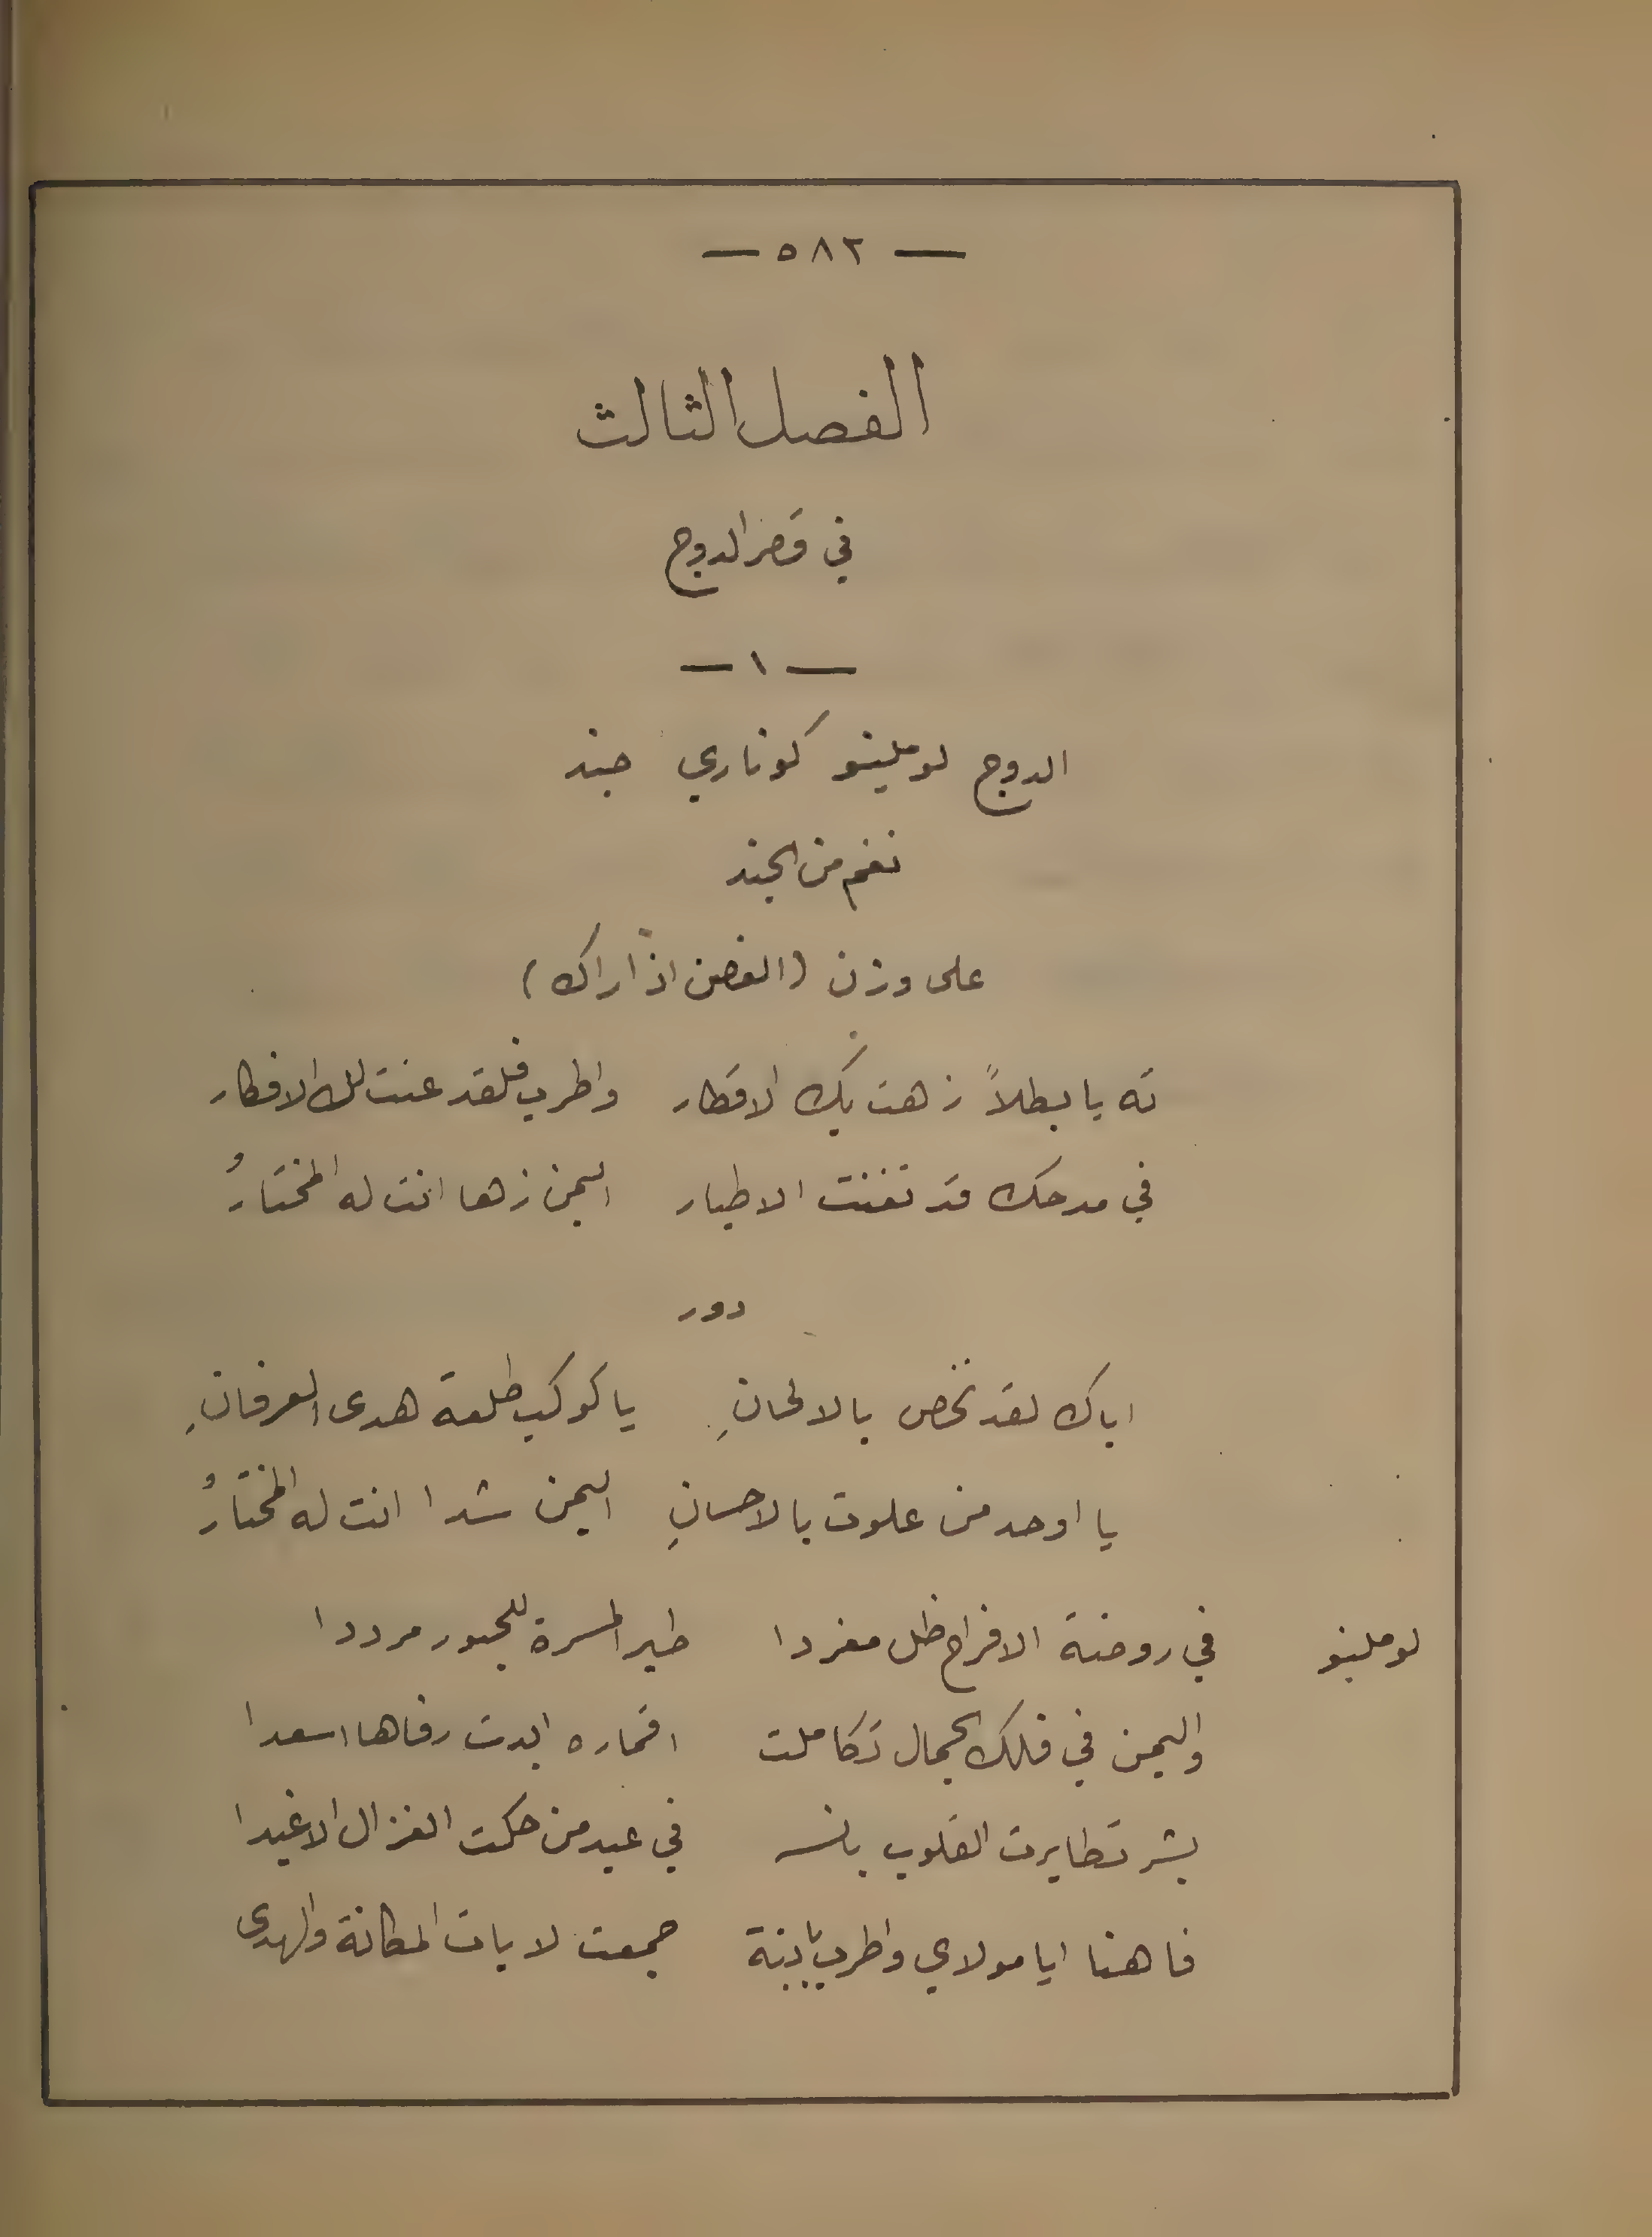 — ٥٨٢ —
الفصل الثالث
في قصر الدوج
— ١ —
الدوج لوملينو كوناري جند
نغم من الجند
على وزن (الغصن اذا راك)
ته يا بطلاً زهت بك الاقطار واطرب فلقد عنت لك الافكار
في مدحك قد تغنت الاطيار اليمن زها انت له المختارُ
دور
اياك لقد نخص بالالحانِ يا كوكب طلعة هدى العرفانِ
يا اوحد من علوت بالاحسانِ اليمن شدا انت له المختارُ
لوملينو في روضة الافراح ظل مغردا طير المسرة للحبور مرددا
واليمن في فلك الجمال تكاملت اقماره ابدت رفاها اسعدا
بشر تطايرت القلوب بانسه في عيد من حكت الغزال الاغيدا
فاهنا ايا مولاي واطرب بابنة جمعت لايات المكانة والهدى